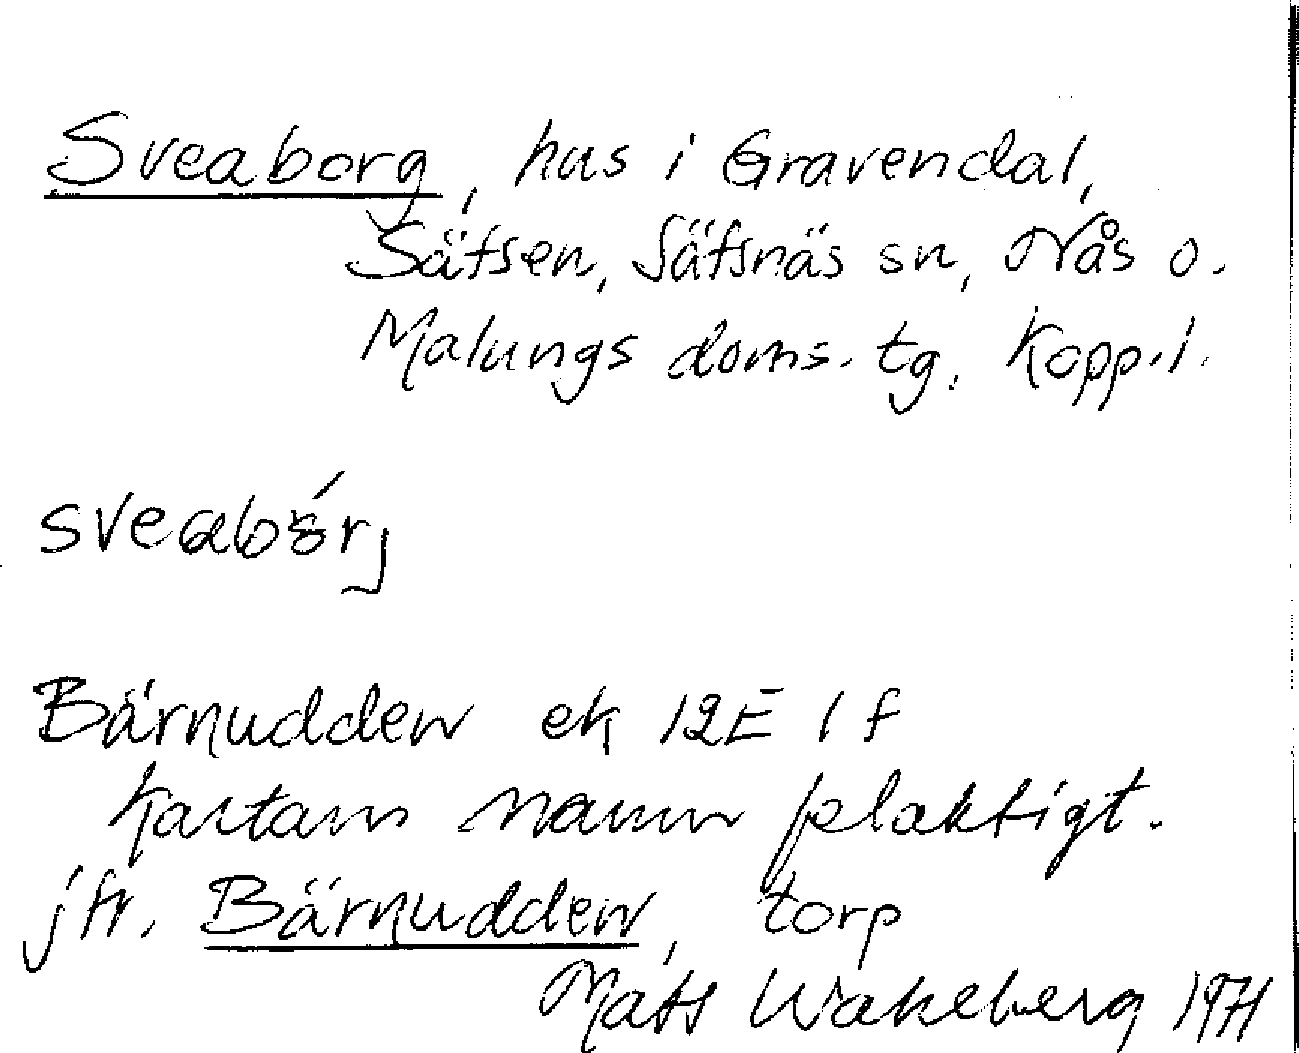 Sveaborg, hus i Gravendal,
Säfsen, Säfsnäs sn, Nås o.
Malungs doms. tg. Kopp.l.
Bärnudden ek 12E 1 f
Kartans namn felaktigt.
jfr. Bärnudden, torp
Mats Wahlberg 1971